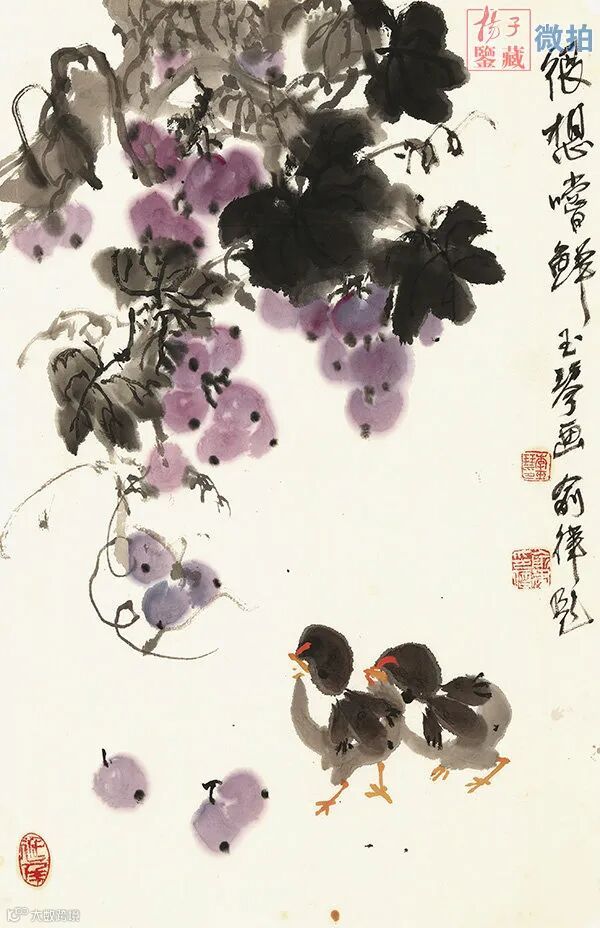 杨子
鉴藏
微拍
很想嚐鲜 玉琴画 俞律题
大数跨境